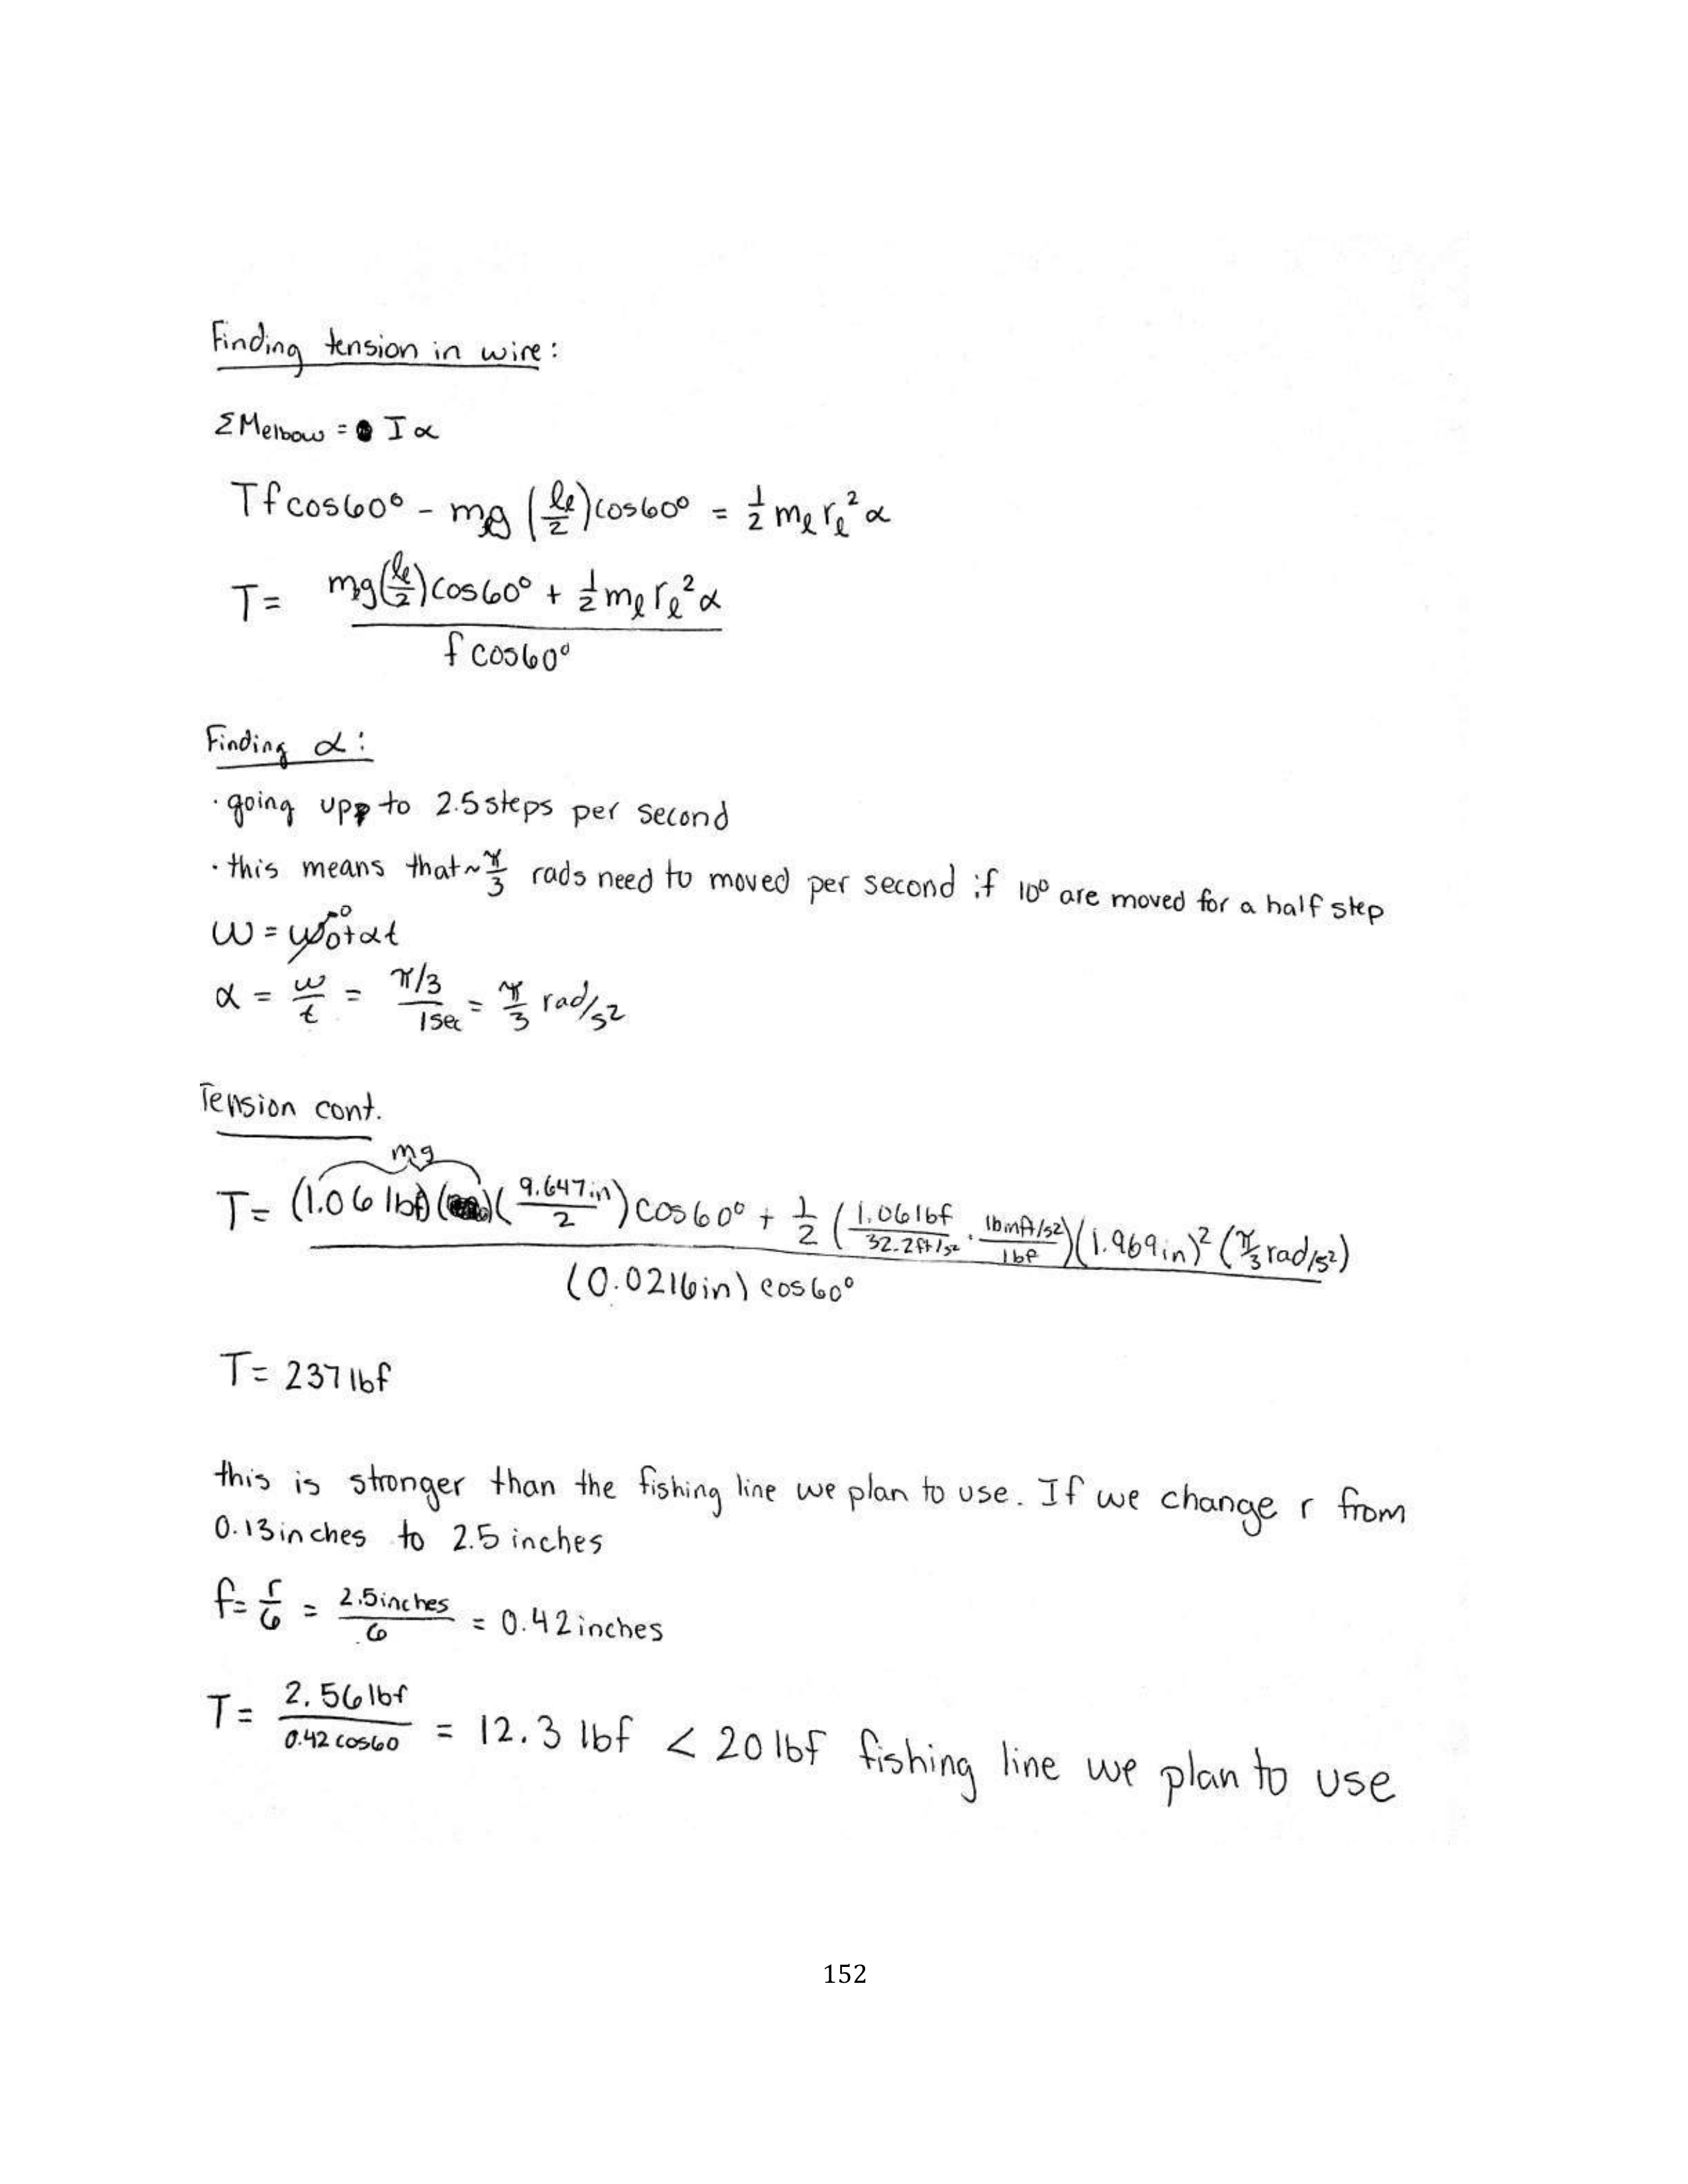 Finding tension in wire:
ΣMelbow = Iα
Tfcos60° - mg (le/2)cos60° = 1/2 mℓ rℓ² α
T = (mg(le/2)cos60° + 1/2 mℓ rℓ² α) / (f cos60°)
Finding α:
· going upp to 2.5 steps per second
· this means that ~ π/3 rads need to moved per second if 10° are moved for a half step
ω = ω0 + αt
α = ω/t = (π/3)/1sec = π/3 rad/s²
Tension cont.
mg
T = ((1.06 lbf)(9.647in/2)cos60° + 1/2 (1.06lbf/32.2ft/s² · lbmft/s²/lbf)(1.969in)² (π/3 rad/s²)) / ((0.0216in) cos60°)
T = 237 lbf
this is stronger than the fishing line we plan to use. If we change r from
0.13inches to 2.5 inches
f = r/6 = 2.5inches/6 = 0.42inches
T = 2.56lbf/0.42cos60 = 12.3 lbf < 20 lbf fishing line we plan to use
152